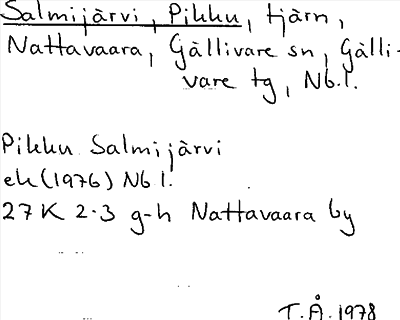 Salmijärvi, Pikku, tjärn,
Nattavaara, Gällivare sn, Gälli-
vare tg, Nb.l.
Pikku Salmijärvi
ek (1976) Nb l.
27 K 2-3 g-h Nattavaara by
T.Å. 1978